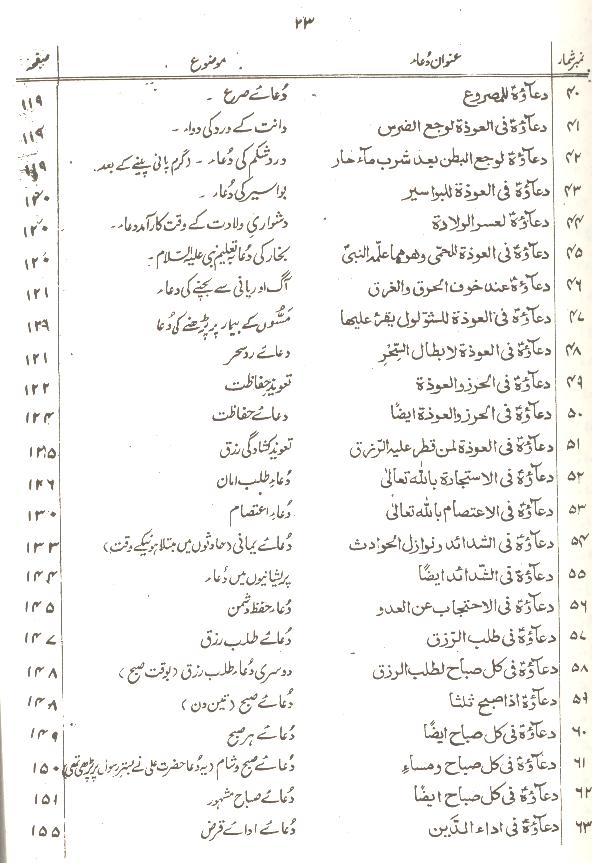 ۲۳
نمبر شمار عنوان دُعاء موضوع صفحہ
۴۰ دعاؤہٗ للمصروع دُعائے صرع ۔ ۱۱۹
۴۱ دعاؤہٗ فی العوذۃ لوجع الضرس دانت کے درد کی دواء ۔ ۱۱۹
۴۲ دعاؤہٗ لوجع البطن بعد شرب مآء حار دردِ شکم کی دُعاء ۔ (گرم پانی پینے کے بعد۔ ۱۱۹
۴۳ دعاؤہٗ فی العوذۃ للبواسیر بواسیر کی دُعاء ۔ ۱۲۰
۴۴ دعاؤہٗ لعسر الولادۃ دشواریِ ولادت کے وقت کارآمد دعاء ۔ ۱۲۰
۴۵ دعاؤہٗ فی العوذۃ للحمّٰی وھو مما علّمہ النبیّ بخار کی دُعا بہ تعلیم نبی علیہ السّلام ۔ ۱۲۰
۴۶ دعاؤہٗ عند خوف الحرق والغرق آگ اور پانی سے بچنے کی دعاء ۱۲۱
۴۷ دعاؤہٗ فی العوذۃ للثؤلول یقرء علیھا مسّوں کے بیمار پر پڑھنے کی دُعا ۱۲۹
۴۸ دعاؤہٗ فی العوذۃ لابطال السِّحْر دعائے ردّ سحر ۱۲۱
۴۹ دعاؤہٗ فی الحرز والعوذۃ تعویذِ حفاظت ۱۲۲
۵۰ دعاؤہٗ فی الحرز والعوذۃ ایضًا دعائے حفاظت ۱۲۴
۵۱ دعاؤہٗ فی العوذۃ لمن قطر علیہ الترزق تعویذ کشادگی رزق ۱۲۵
۵۲ دعاؤہٗ فی الاستجارۃ باللّٰہ تعالیٰ دُعاءِ طلب امان ۱۲۶
۵۳ دعاؤہٗ فی الاعتصام باللّٰہ تعالیٰ دُعاءِ اعتصام ۱۳۰
۵۴ دعاؤہٗ فی الشدائد ونوازل الحوادث دُعائے یمانی (حادثوں میں مبتلا ہونیکے وقت) ۱۳۳
۵۵ دعاؤہٗ فی الشّدائد ایضًا پریشانیوں میں دُعاء ۱۴۴
۵۶ دعاؤہٗ فی الاحتجاب عن العدو دُعاء حفظ دشمن ۱۴۵
۵۷ دعاؤہٗ فی طلب الرّزق دُعائے طلب رزق ۱۴۷
۵۸ دعاؤہٗ فی کل صباح لطلب الرزق دوسری دُعاء طلب رزق (بوقت صبح) ۱۴۸
۵۹ دعاؤہٗ اذا صبح ثلثا دُعائے صبح (تین دن) ۱۴۸
۶۰ دعاؤہٗ فی کل صباح ایضًا دُعائے ہر صبح ۱۴۹
۶۱ دعاؤہٗ فی کل صباح ومساءِ دُعائے صبح و شام (یہ دُعا حضرت علی نے بستر رسول پر پڑھی تھی) ۱۵۰
۶۲ دعاؤہٗ فی کل صباح ایضًا دُعائے صباح مشہور ۱۵۱
۶۳ دعاؤہٗ فی اداء الدّین دُعائے ادائے قرض ۱۵۵